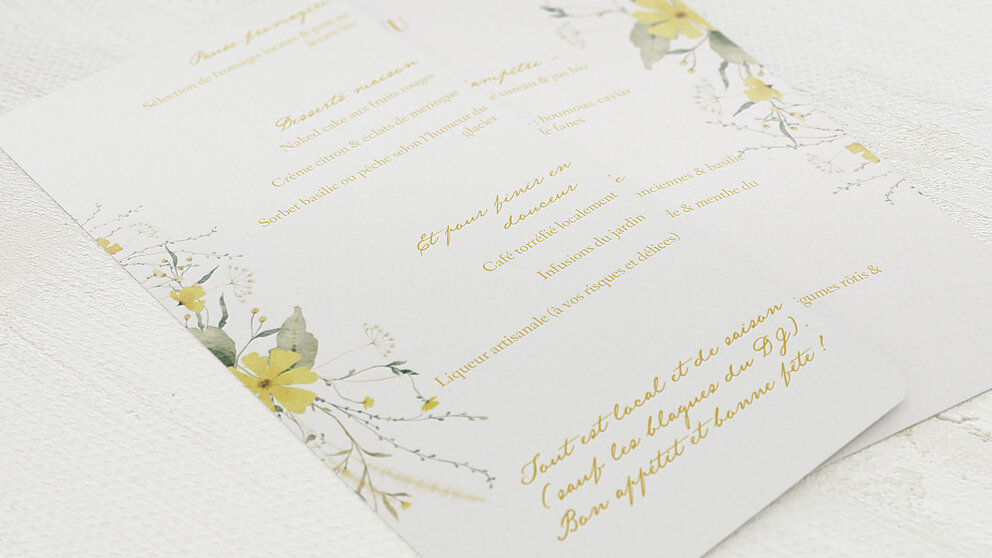 Pause fromagère
Sélection de fromages locaux & pain au
levain bio
Desserts maison
Naked cake aux fruits rouges
Crème citron & éclats de meringue
Sorbet basilic ou pêche selon l'humeur du
glacier
Et pour finir en
douceur
Café torréfié localement
Infusions du jardin
Liqueur artisanale (à vos risques et délices)
Tout est local et de saison
(sauf les blagues du DJ).
Bon appétit et bonne fête !
U
sureau & jus bio
houmous, caviar
le fanes
anciennes & basilic
le & menthe du
rôtis &